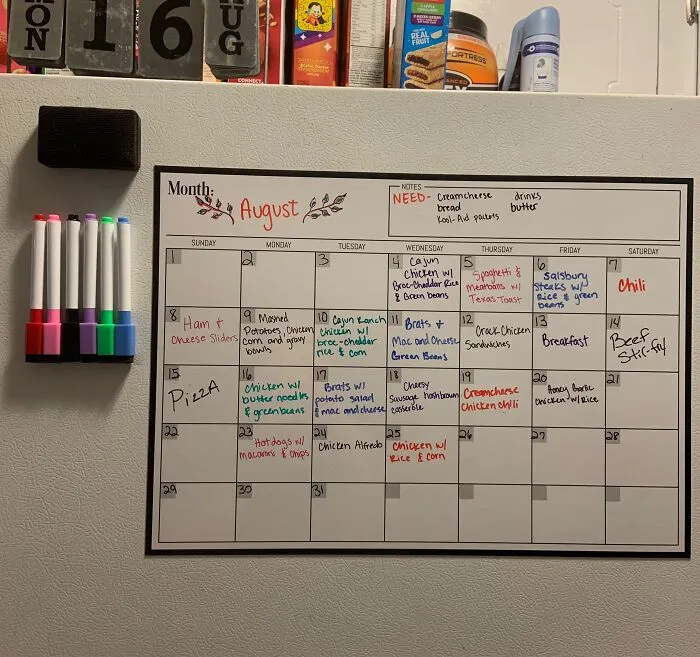 MON
1
6
AUG
APPLE
REAL
FRUIT
FORTRESS
CONNECT
Month:
August
NOTES
NEED- Creamcheese drinks
bread butter
Kool-Aid packets
SUNDAY MONDAY TUESDAY WEDNESDAY THURSDAY FRIDAY SATURDAY
1
2
3
4 Cajun
Chicken w/
Broc-Cheddar Rice
& Green beans
5
Spaghetti &
meatballs w/
Texas Toast
6
Salsbury
Steaks w/
Rice & green
beans
7
Chili
8
Ham +
Cheese Sliders
9 Mashed
Potatoes, Chicken
corn and gravy
bowls
10 Cajun Ranch
Chicken w/
broc-cheddar
rice & corn
11
Brats &
Mac and Cheese
Green Beans
12
Crack Chicken
Sandwiches
13
Breakfast
14
Beef
Stir-fry
15
PizzA
16
Chicken w/
butter noodles
& greenbeans
17
Brats w/
potato salad
& mac and cheese
18
Cheesy
Sausage hashbrown
casserole
19
Creamcheese
Chicken chili
20
Honey Garlic
Chicken w/Rice
21
22
23
Hotdogs w/
macaroni & chips
24
Chicken Alfredo
25
Chicken w/
Rice & Corn
26
27
28
29
30
31